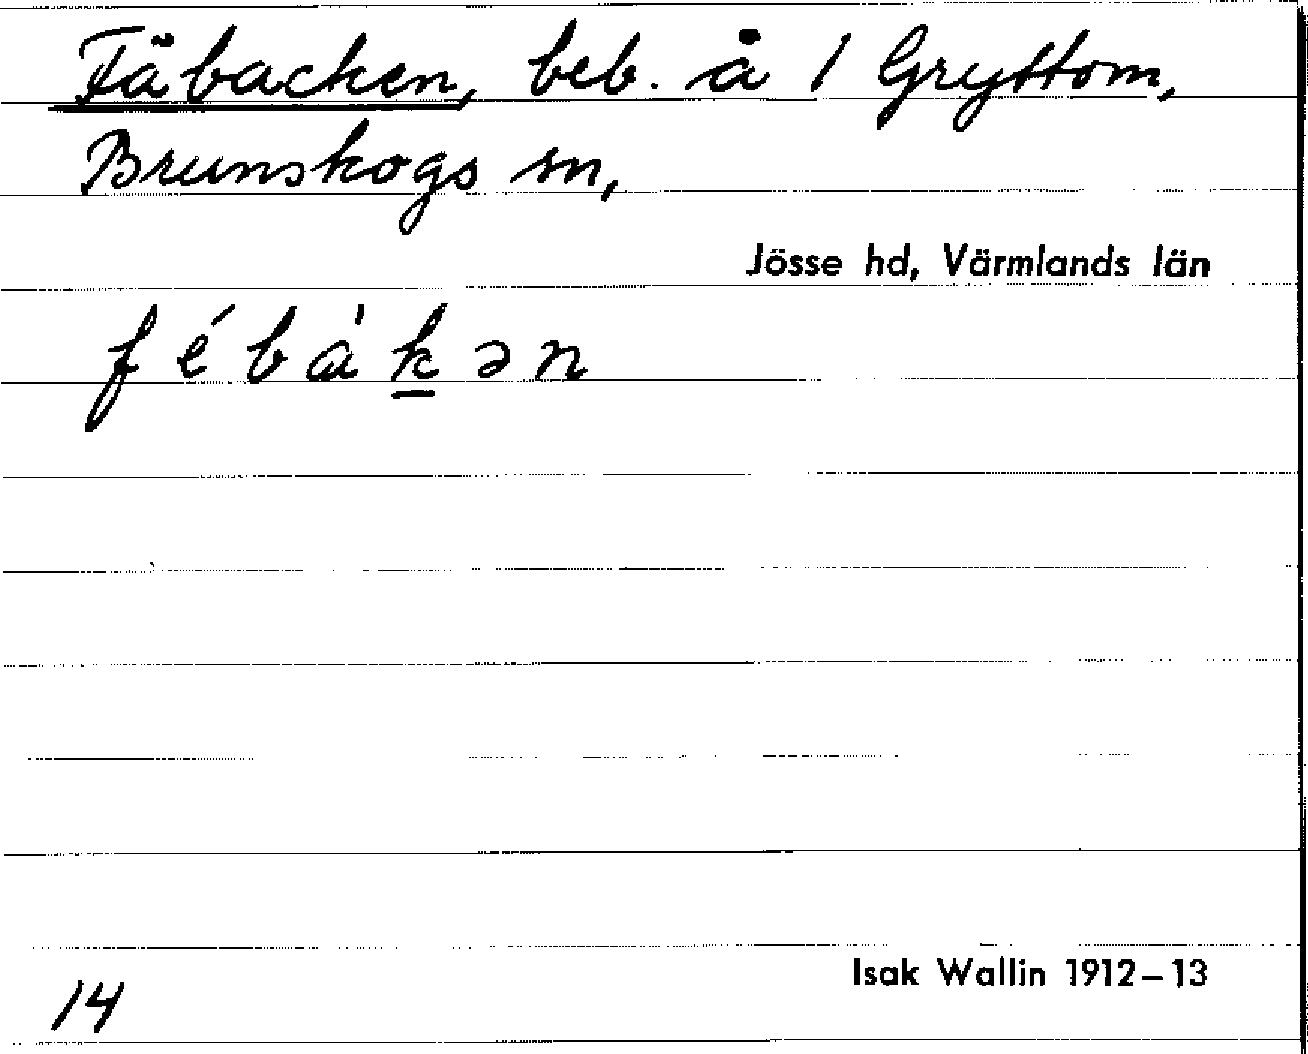 Fäbacken, beb. å 1 Gryttom,
Brunskogs sn,
Jösse hd, Värmlands län
f é b à k ə n
Isak Wallin 1912–13
14